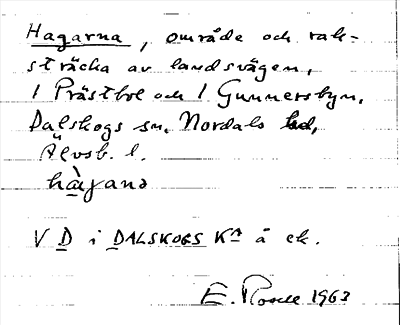 Hagarna, område och rak-
sträcka av landsvägen,
1 Prästbol och 1 Gunnersbyn,
Dalskogs sn, Nordals hd,
Älvsb. l.
V D i DALSKOGS KA å ek.
E. Rosell 1963